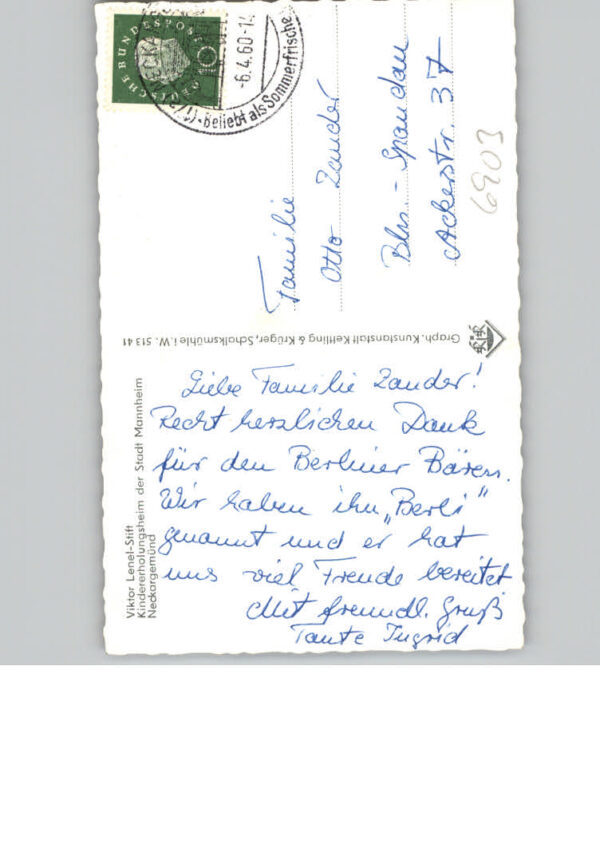 DEUTSCHE BUNDESPOST
10
-6.4.60-1
Beliebt als Sommerfrische
Familie
Otto Zander
Bln. - Spandau
Ackerstr. 37
6903
Graph. Kunstanstalt Kettling & Krüger, Schalksmühle i.W. 51341
Viktor Lenel-Stift
Kindererholungsheim der Stadt Mannheim
Neckargemünd
Liebe Familie Zander!
Recht herzlichen Dank
für den Berliner Bären.
Wir haben ihn „Berli"
genannt und er hat
uns viel Freude bereitet
Mit freundl. Gruß
Tante Ingrid